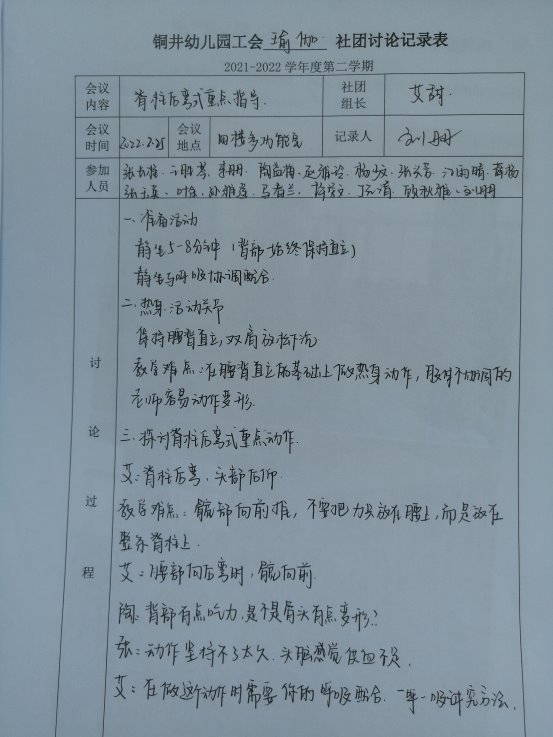 铜井幼儿园工会 瑜伽 社团讨论记录表
2021-2022 学年度第二学期
会议内容 脊柱后弯式重点指导. 社团组长 艾甜.
会议时间 2022.2.25 会议地点 四楼多功能室 记录人 刘丹丹
参加人员
讨论过程
一、准备活动
静坐5-8分钟（背部始终保持直立）
静坐与呼吸协调配合.
二、热身活动关节
保持腰背直立,双肩放松下沉
教学难点:在腰背直立的基础上做热身动作,肢体不协调的
老师容易动作变形.
三、探讨脊柱后弯式重点动作.
艾:脊柱后弯、头部后仰.
教学难点:髋部向前推,不要把力只放在腰上,而是放在
整条脊柱上.
艾:腰部向后弯时,髋向前.
陶:背部有点吃力,是不是骨头有点变形?
张:动作坚持不了太久.头脑感觉供血不足.
艾:在做这个动作时需要你的呼吸配合.一呼一吸讲究方法.